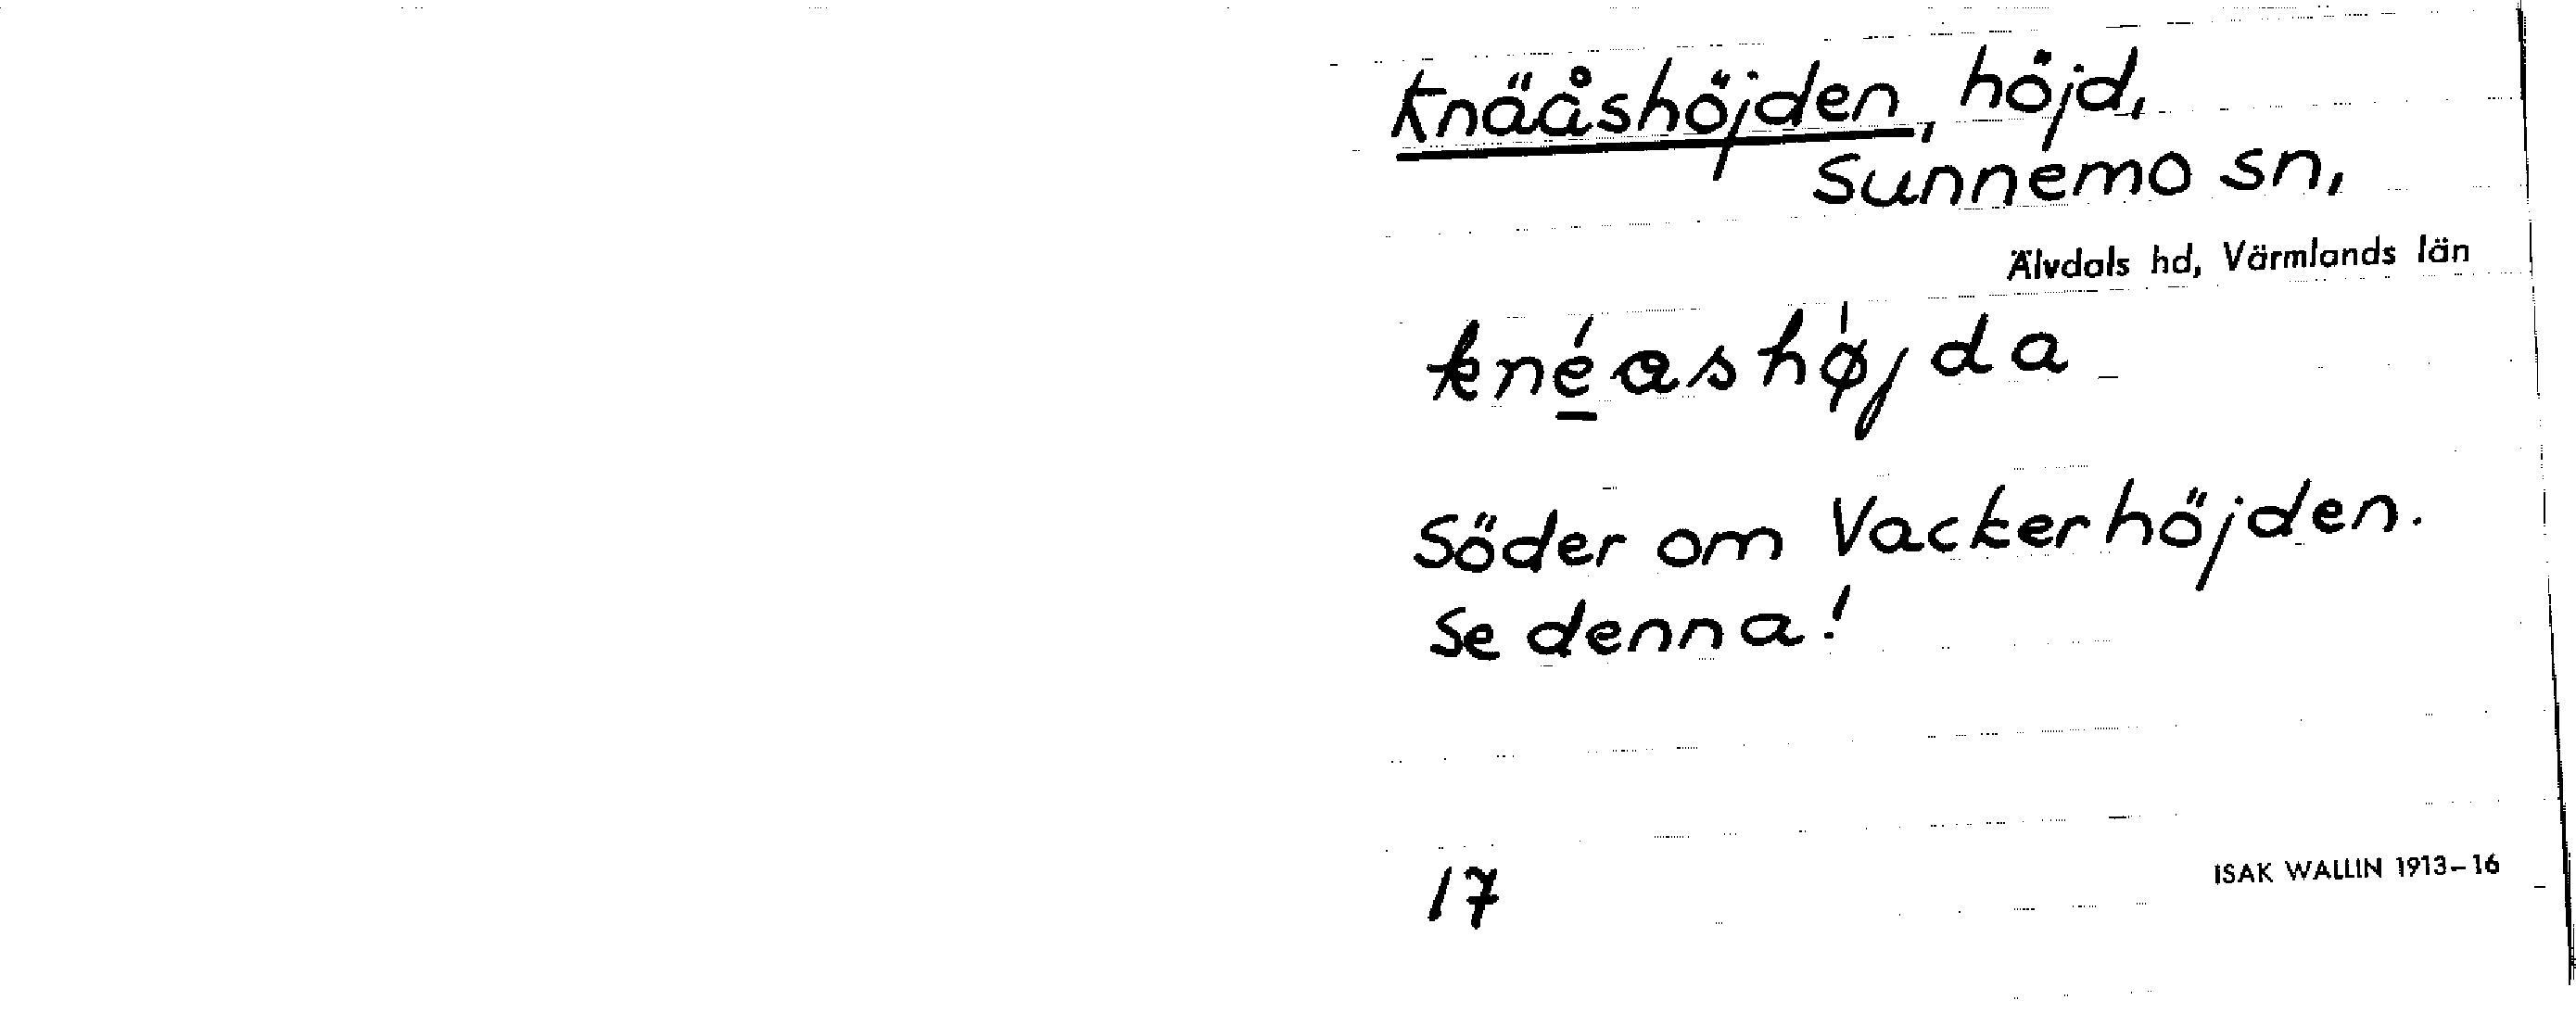 Knäåshöjden, höjd,
Sunnemo sn,
Älvdals hd, Värmlands län
knéashø̍jda
Söder om Vackerhöjden.
Se denna!
17
ISAK WALLIN 1913-16